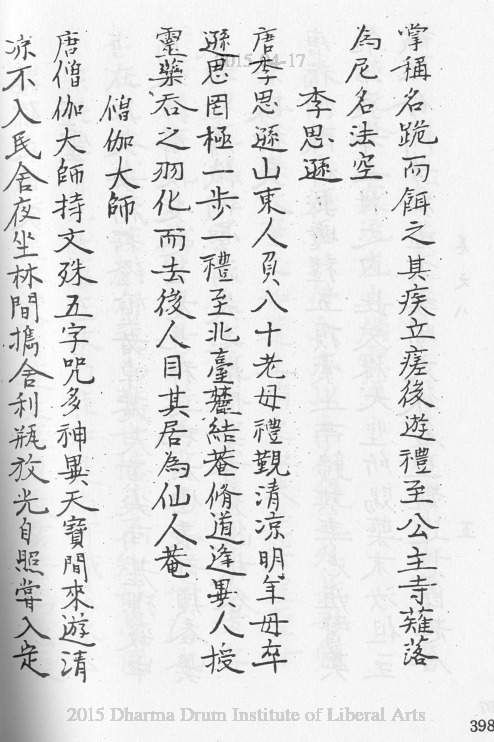 掌稱名跪而餌之其疾立瘥後遊禮至公主寺薙落
為尼名法空
李思遜
唐李思遜山東人負八十老母禮覲清涼明年母卒
遜思罔極一步一禮至北臺麓結菴脩道逢異人授
靈藥吞之羽化而去後人目其居為仙人菴
僧伽大師
唐僧伽大師持文殊五字咒多神異天寶間來遊清
凉不入民舍夜坐林間擕舍利瓶放光自照嘗入定
2015-04-17
2015 Dharma Drum Institute of Liberal Arts
398